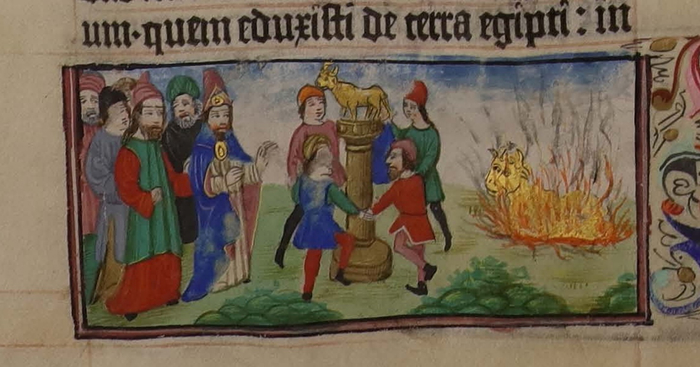 um·quem eduxisti de terra egipti : in